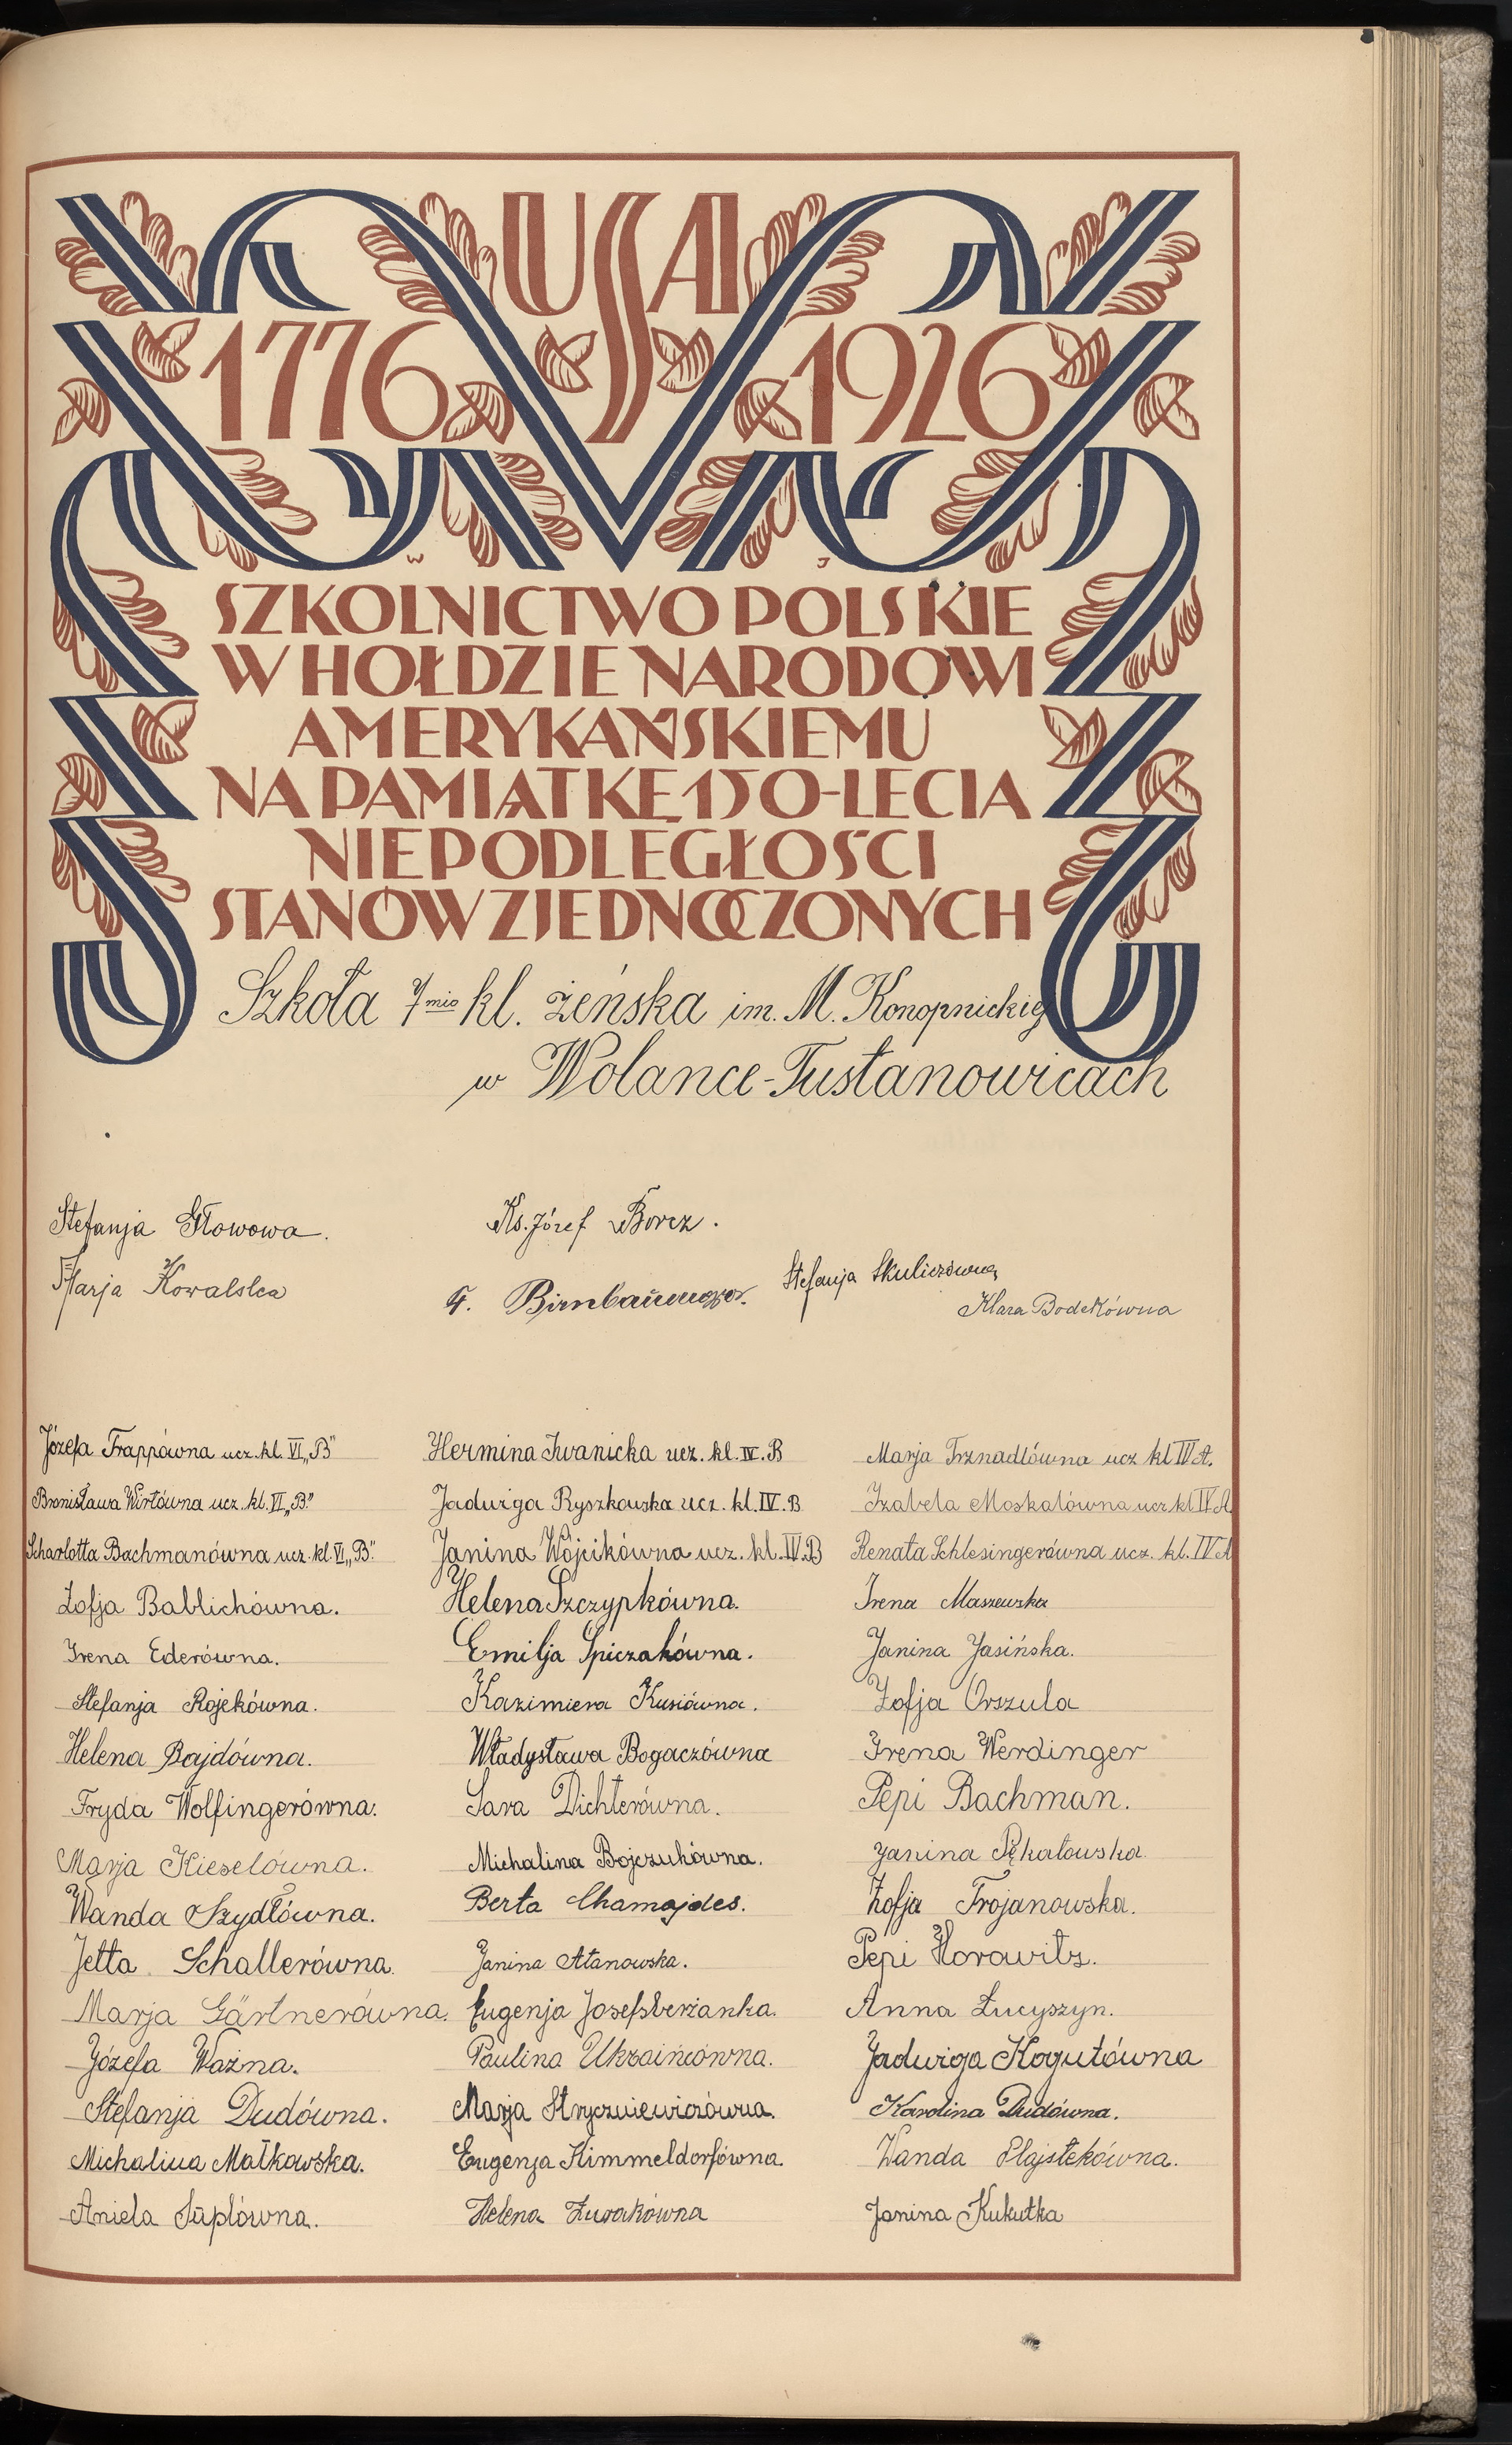 USA
1776 1926
W J
SZKOLNICTWO POLSKIE
W HOŁDZIE NARODOWI
AMERYKAŃSKIEMU
NA PAMIĄTKĘ 150-LECIA
NIEPODLEGŁOŚCI
STANÓW ZJEDNOCZONYCH
Szkoła 7mio kl. żeńska im. M. Konopnickiej
w Wolance-Tustanowicach
Stefanja Głowowa.
Ks. Józef Borcz.
Marja Kowalska
Stefanja Skuliczówna
Klara Bodekówna
Józefa Frappówna ucz. kl. VI „B"
Bronisława Wirtówna ucz. kl. VI „B."
Scharlotta Bachmanówna ucz. kl. VI „B."
Zofja Bablichówna.
Irena Ederówna.
Stefanja Rojekówna.
Helena Bajdówna.
Fryda Wolfingerówna.
Marja Kieselówna.
Wanda Szydłówna.
Jetta Schallerówna.
Marja Gärtnerówna.
Józefa Ważna.
Stefanja Dudówna.
Michalina Małkowska.
Aniela Süplówna.
Hermina Iwanicka ucz. kl. IV. B
Jadwiga Ryszkowska ucz. kl. IV. B
Janina Wójcikówna ucz. kl. IV. B
Helena Szczypkówna.
Emilja Spiczakówna.
Kazimiera Kusiówna.
Władysława Bogaczówna
Sara Dichterówna.
Michalina Bojczukówna.
Berta Chamajdes.
Janina Atanowska.
Eugenja Josefsberżanka.
Paulina Ukraińcówna.
Marja Stryczniewiczówna.
Eugenja Kimmeldorfówna.
Helena Żurakówna
Marja Trznadlówna ucz kl IV A.
Izabela Moskalówna ucz kl IV A
Renata Schlesingerówna ucz. kl. IV A
Irena Maszewska
Janina Jasińska.
Zofja Orszula
Irena Werdinger
Pepi Bachman.
Janina Pękałowska
Zofja Trojanowska.
Pepi Horowitz.
Anna Łucyszyn.
Jadwiga Kogutówna
Karolina Dudówna.
Wanda Płajstekówna.
Janina Kukułka